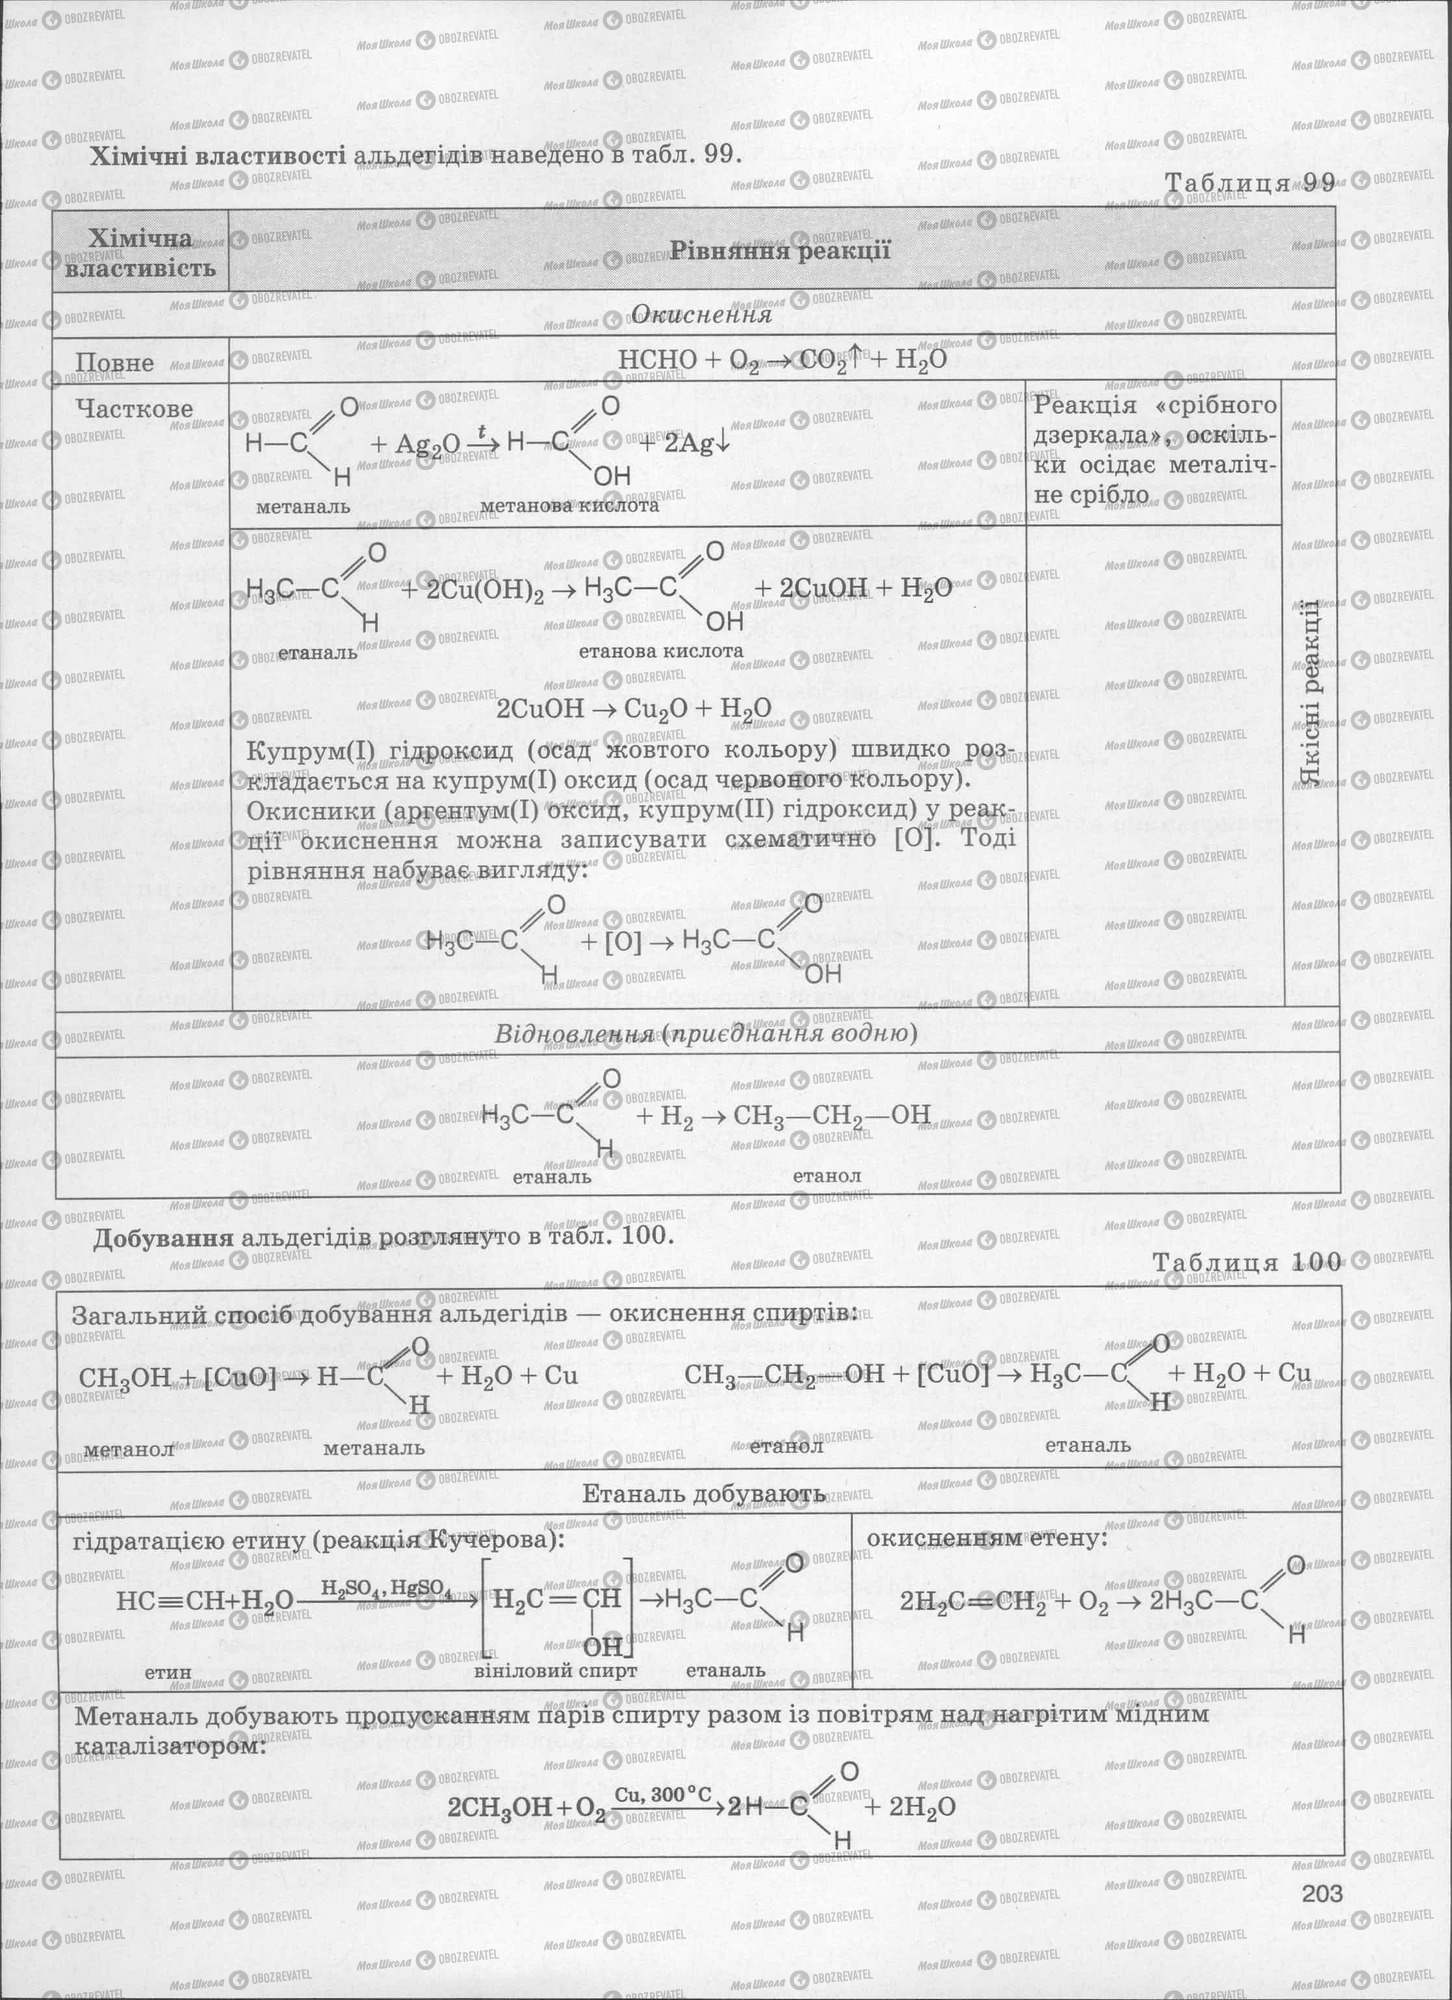 Хімічні властивості альдегідів наведено в табл. 99.
Таблиця 99
Хімічна
властивість
Рівняння реакції
Окиснення
Повне
HCHO + O₂ → CO₂↑ + H₂O
Часткове
H—C(=O)—H + Ag₂O —t→ H—C(=O)—OH + 2Ag↓
метаналь метанова кислота
Реакція «срібного
дзеркала», оскіль-
ки осідає металіч-
не срібло
H₃C—C(=O)—H + 2Cu(OH)₂ → H₃C—C(=O)—OH + 2CuOH + H₂O
етаналь етанова кислота
2CuOH → Cu₂O + H₂O
Купрум(I) гідроксид (осад жовтого кольору) швидко роз-
кладається на купрум(I) оксид (осад червоного кольору).
Окисники (аргентум(I) оксид, купрум(II) гідроксид) у реак-
ції окиснення можна записувати схематично [O]. Тоді
рівняння набуває вигляду:
H₃C—C(=O)—H + [O] → H₃C—C(=O)—OH
Якісні реакції
Відновлення (приєднання водню)
H₃C—C(=O)—H + H₂ → CH₃—CH₂—OH
етаналь етанол
Добування альдегідів розглянуто в табл. 100.
Таблиця 100
Загальний спосіб добування альдегідів — окиснення спиртів:
CH₃OH + [CuO] → H—C(=O)—H + H₂O + Cu CH₃—CH₂—OH + [CuO] → H₃C—C(=O)—H + H₂O + Cu
метанол метаналь етанол етаналь
Етаналь добувають
гідратацією етину (реакція Кучерова):
HC≡CH+H₂O —H₂SO₄, HgSO₄→ [H₂C=CH—OH] → H₃C—C(=O)—H
етин вініловий спирт етаналь
окисненням етену:
2H₂C=CH₂ + O₂ → 2H₃C—C(=O)—H
Метаналь добувають пропусканням парів спирту разом із повітрям над нагрітим мідним
каталізатором:
2CH₃OH + O₂ —Cu, 300 °C→ 2H—C(=O)—H + 2H₂O
203
МояШкола OBOZREVATEL